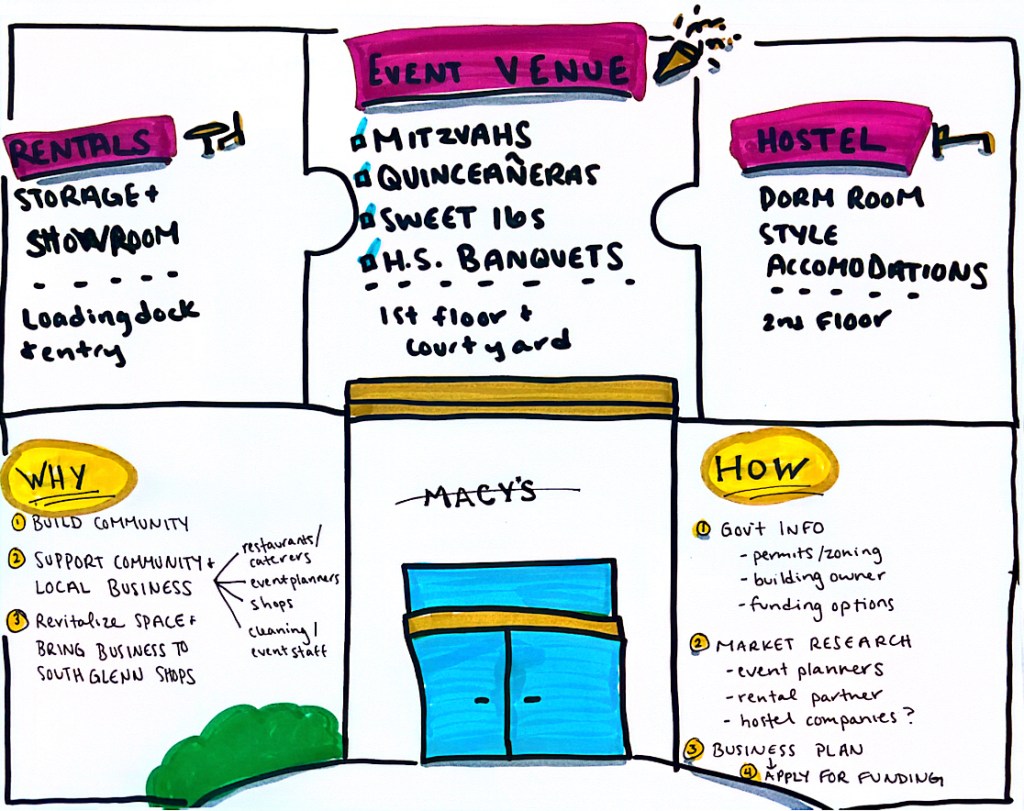 EVENT VENUE
MITZVAHS
QUINCEAÑERAS
SWEET 16s
H.S. BANQUETS
1st floor +
courtyard
RENTALS
STORAGE +
SHOWROOM
Loading dock
+ entry
HOSTEL
DORM ROOM
STYLE
ACCOMODATIONS
2nd FLOOR
WHY
① BUILD COMMUNITY
② SUPPORT COMMUNITY +
LOCAL BUSINESS
restaurants/
caterers
event planners
shops
cleaning/
event staff
③ Revitalize SPACE +
BRING BUSINESS TO
SOUTHGLENN SHOPS
MACY'S
HOW
① GOV'T INFO
- permits/zoning
- building owner
- funding options
② MARKET RESEARCH
- event planners
- rental partner
- hostel companies?
③ BUSINESS PLAN
④ APPLY FOR FUNDING